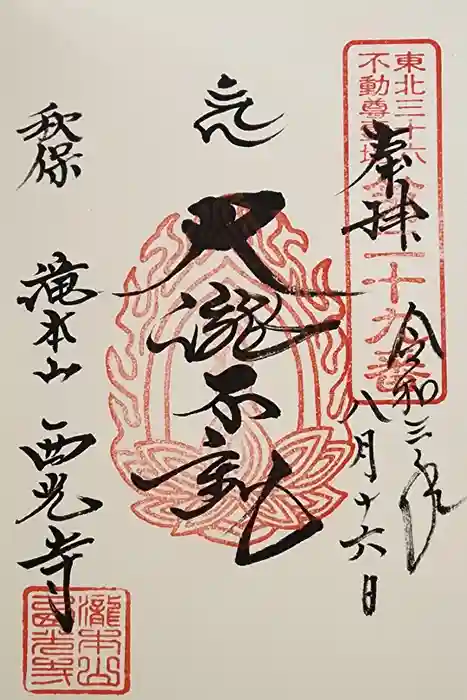 東北三十六
不動尊霊場
二十九番
奉拝
令和三年
八月十六日
大瀧不動
秋保 滝本山 西光寺
瀧本山
西光寺